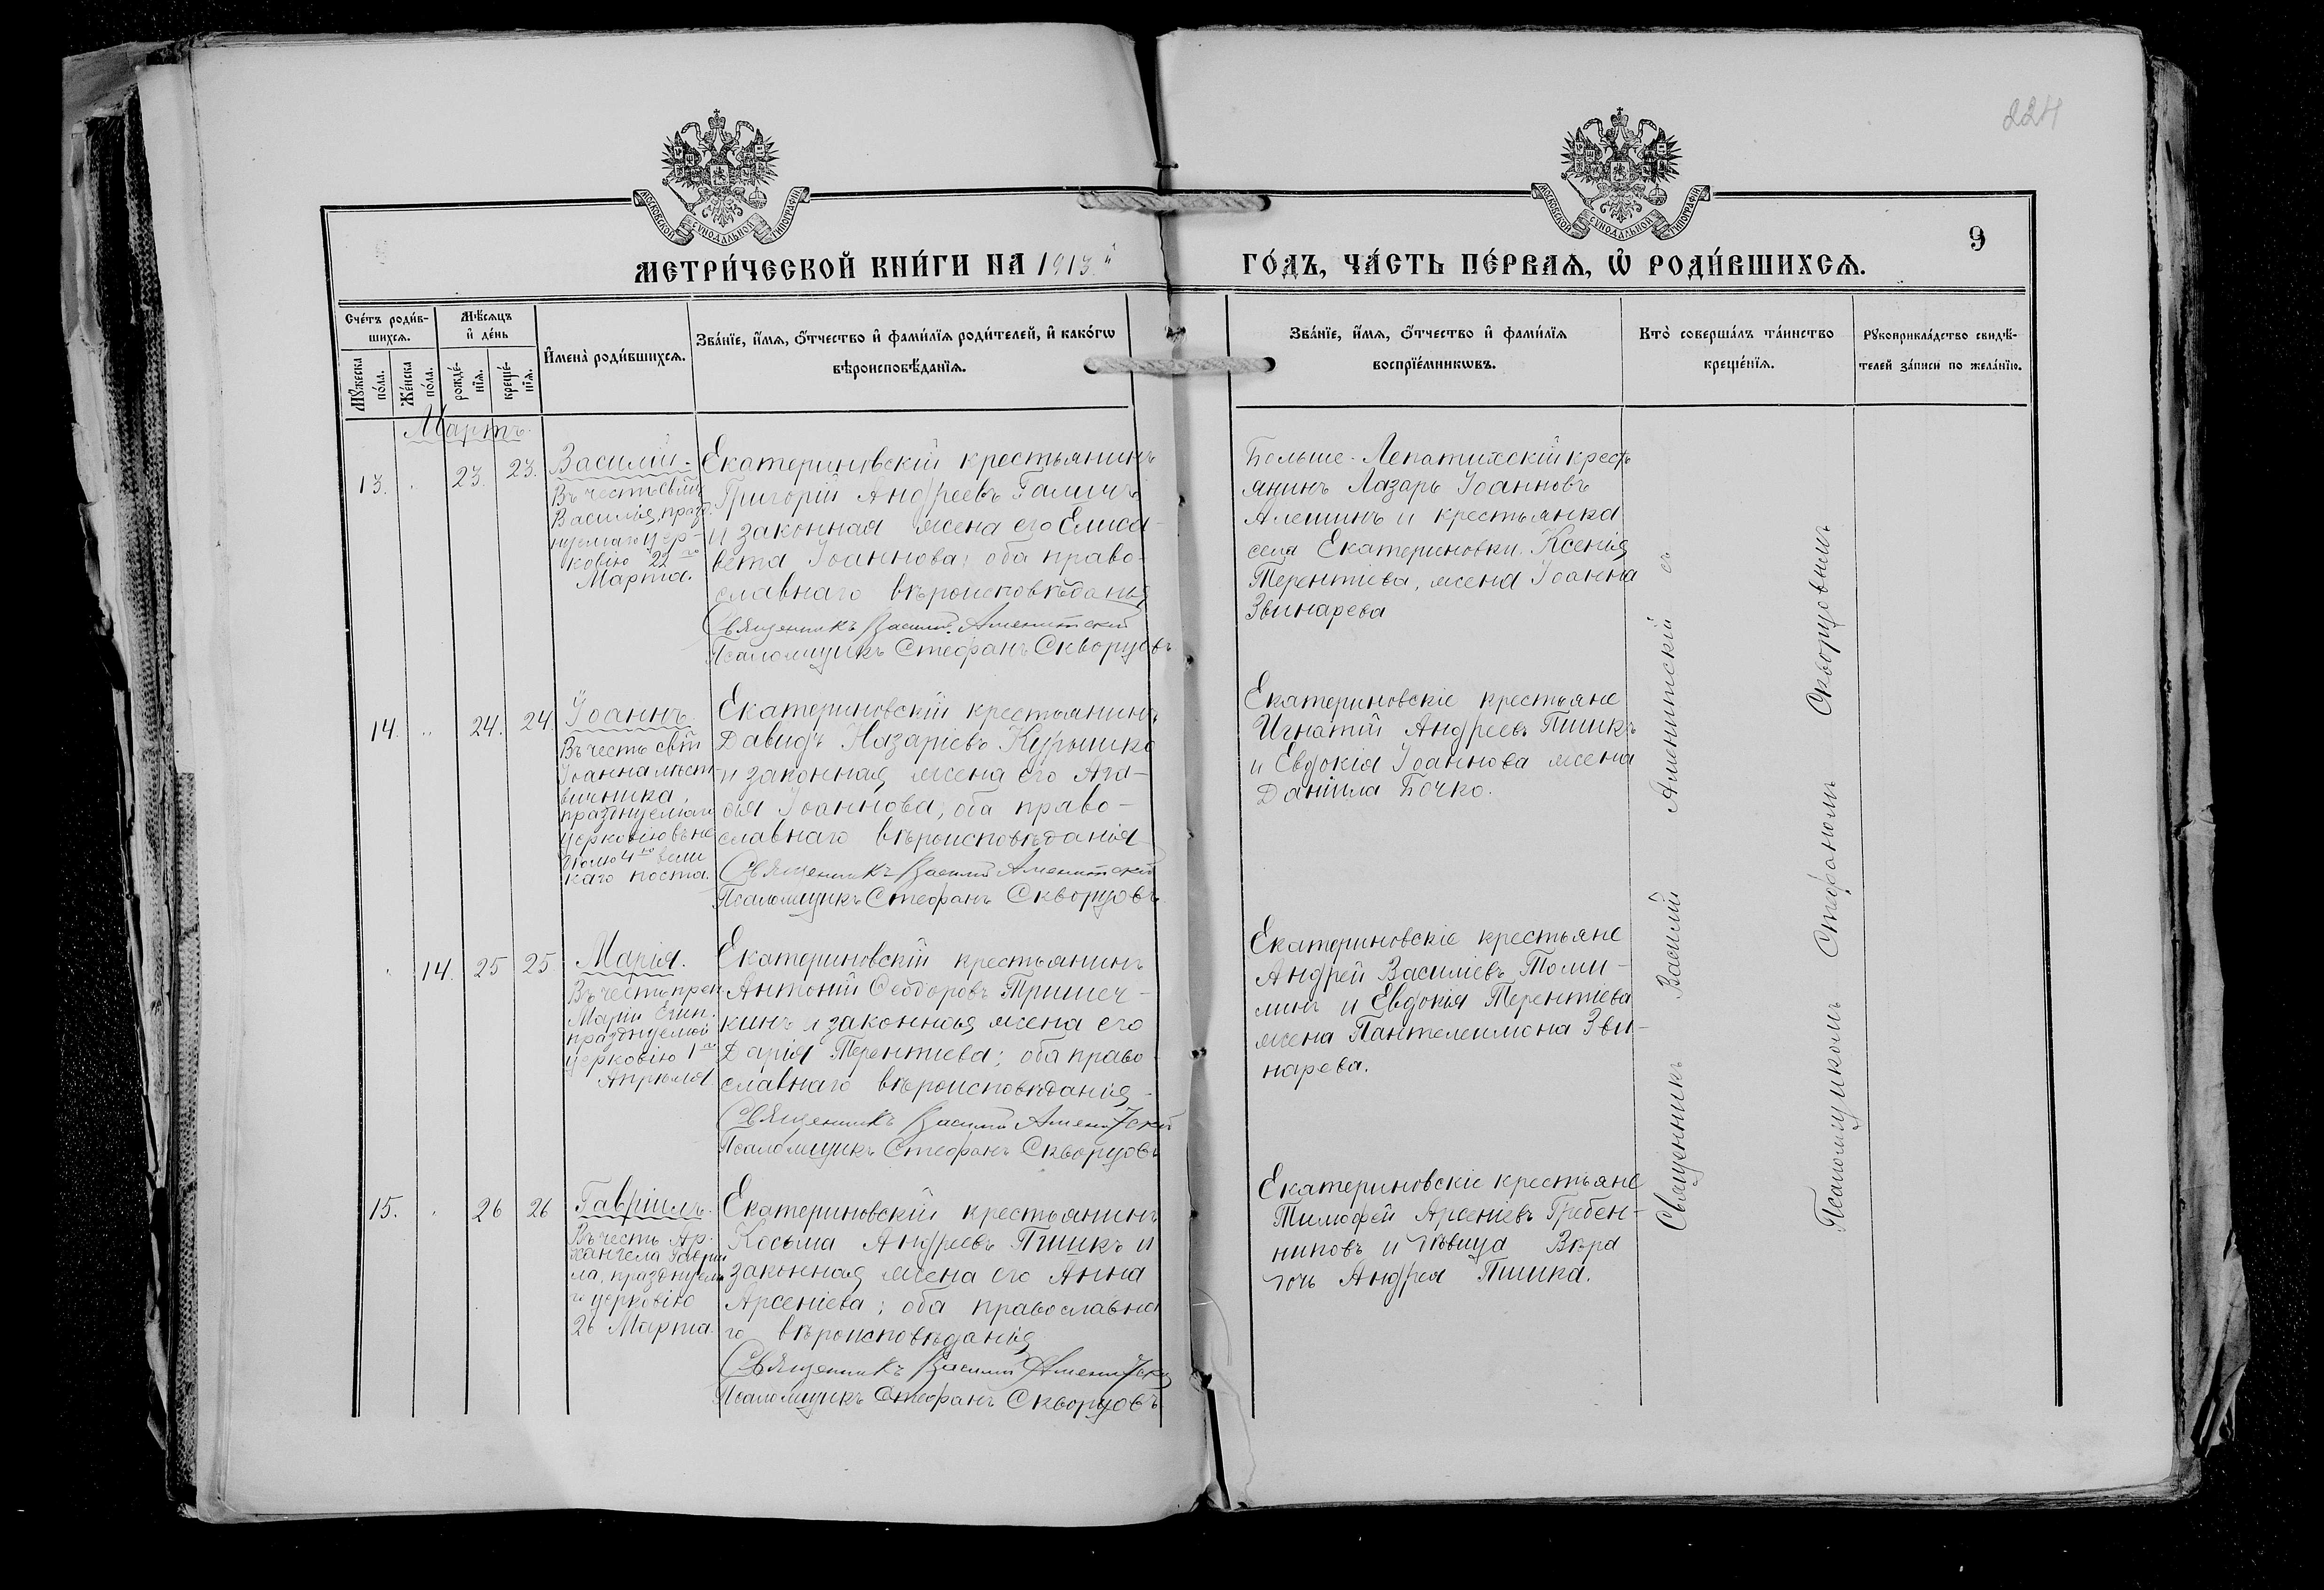 224
МОСКОВСКОЙ СѴНОДАЛЬНОЙ ТИПОГРАФІИ
МОСКОВСКОЙ СѴНОДАЛЬНОЙ ТИПОГРАФІИ
9
МЕТРИ́ЧЕСКОЙ КНИ́ГИ НА 1913.й
ГО́ДЪ, ЧА́СТЬ ПЕ́РВАѦ, Ѡ҆ РОДИ́ВШИХСѦ.
Сче́тъ роди́в-
шихсѧ.
Мꙋ́жеска
по́ла.
Же́нска
по́ла.
Мѣ́сѧцъ
и҆ де́нь
рожде́-
нїѧ.
креще́-
нїѧ.
И҆мена̀ роди́вшихсѧ.
Зва́нїе, и҆́мѧ, ѻ҆́тчество и҆ фами́лїѧ роди́телей, и҆ како́гѡ
вѣроисповѣ́данїѧ.
Зва́нїе, и҆́мѧ, ѻ҆́тчество и҆ фами́лїѧ
воспрїе́мникѡвъ.
Кто̀ соверша́лъ та́инство
креще́нїѧ.
Рꙋкоприкла́дство свидѣ́-
телей за́писи по жела́нїю.
Мартъ.
13. 23. 23.
Василій.
Въ честь свмч
Василія, празд
нуемаго цер-
ковію 22го
Марта.
Екатериновскій крестьянинъ
Григорій Андреевъ Галичъ
и законная жена его Елиса-
вета Іоаннова; оба право-
славнаго вѣроисповѣданія
Священникъ Василій Аменитскій
Псаломщикъ Стефанъ Скворцовъ
Больше-Лепатихскій кресть
янинъ Лазарь Іоанновъ
Алешинъ и крестьянка
села Екатериновки Ксенія
Терентіева, жена Іоанна
Звинарева
14. 24. 24.
Іоаннъ
Въ честь свт
Іоанна лѣст-
вичника,
празднуемаго
церковію въ не
дѣлю 4ю вели
каго поста.
Екатериновскій крестьянинъ
Давидъ Назаріевъ Курышко
и законная жена его Ага-
ѳія Іоаннова; оба право-
славнаго вѣроисповѣданія
Священникъ Василій Аменитскій
Псаломщикъ Стефанъ Скворцовъ
Екатериновскіе крестьяне
Игнатій Андреевъ Пшикъ
и Евдокія Іоаннова жена
Даніила Бочко.
14. 25 25
Марія.
Въ честь преп
Маріи Егип.
празднуемой
церковію 1го
Апрѣля
Екатериновскій крестьянинъ
Антоній Ѳеодоровъ Тришеч-
кинъ и законная жена его
Дарія Терентіева; оба право
славнаго вѣроисповѣданія
Священникъ Василій Аменитскій
Псаломщикъ Стефанъ Скворцовъ
Екатериновскіе крестьяне
Андрей Василіевъ Томи-
линъ и Евдокія Терентіева
жена Пантелеимона Зви-
нарева.
15. 26 26
Гавріилъ.
Въ честь Ар-
хангела Гаврии
ла, празднуема
го церковію
26 Марта.
Екатериновскій крестьянинъ
Косьма Андреевъ Пшикъ и
законная жена его Анна
Арсеніева; оба православна
го вѣроисповѣданія
Священникъ Василій Аменитскій
Псаломщикъ Стефанъ Скворцовъ
Екатериновскіе крестьяне
Тимофей Арсеніевъ Гребен-
никовъ и дѣвица Вѣра
дочь Андрея Пшика.
Священникъ Василій Аменитскій съ
Псаломщикомъ Стефаномъ Скворцовымъ